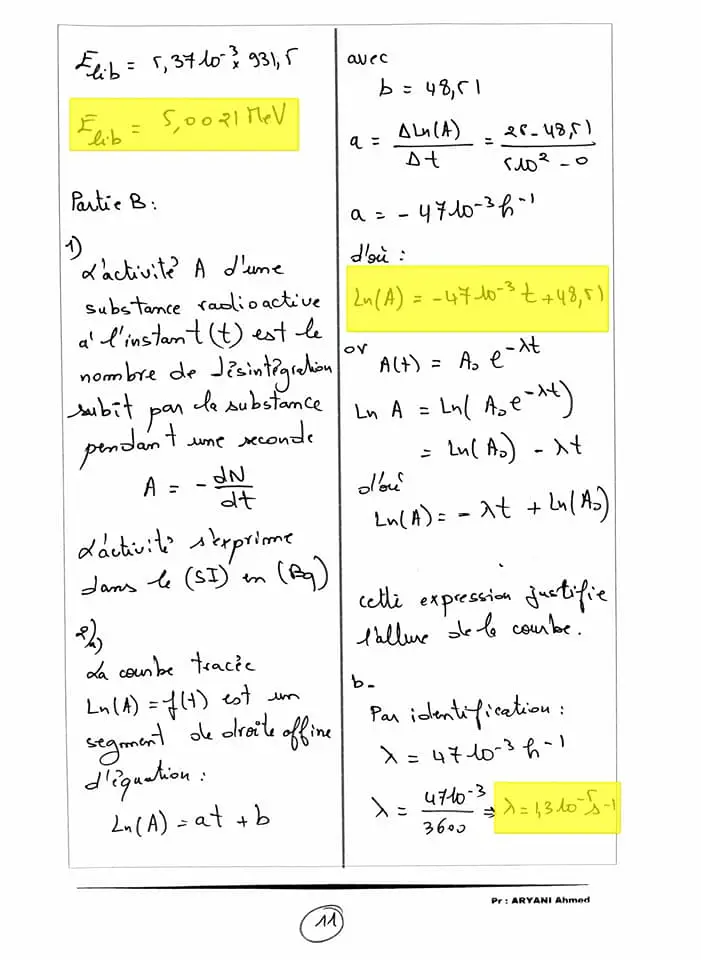 E_lib = 5,37 10⁻³ × 931,5
E_lib = 5,0021 MeV
Partie B :
1)
L'activité A d'une
substance radioactive
a' l'instant (t) est le
nombre de Désintégration
subit par la substance
pendant une seconde
A = - dN/dt
L'activité s'exprime
dans le (SI) en (Bq)
2/a)
La courbe tracée
Ln(A) = f(t) est un
segment de droite affine
d'équation :
Ln(A) = at + b
avec
b = 48,51
a = ΔLn(A)/Δt = (25 - 48,51)/(5 10² - 0)
a = - 47 10⁻³ h⁻¹
d'où :
Ln(A) = -47 10⁻³ t + 48,51
or
A(t) = A₀ e^(-λt)
Ln A = Ln( A₀ e^(-λt))
= Ln(A₀) - λt
d'où
Ln(A) = - λt + Ln(A₀)
cette expression justifie
l'allure de la courbe.
b-
Par identification :
λ = 47 10⁻³ h⁻¹
λ = 47 10⁻³/3600 ⇒ λ = 1,3 10⁻⁵ s⁻¹
Pr : ARYANI Ahmed
11